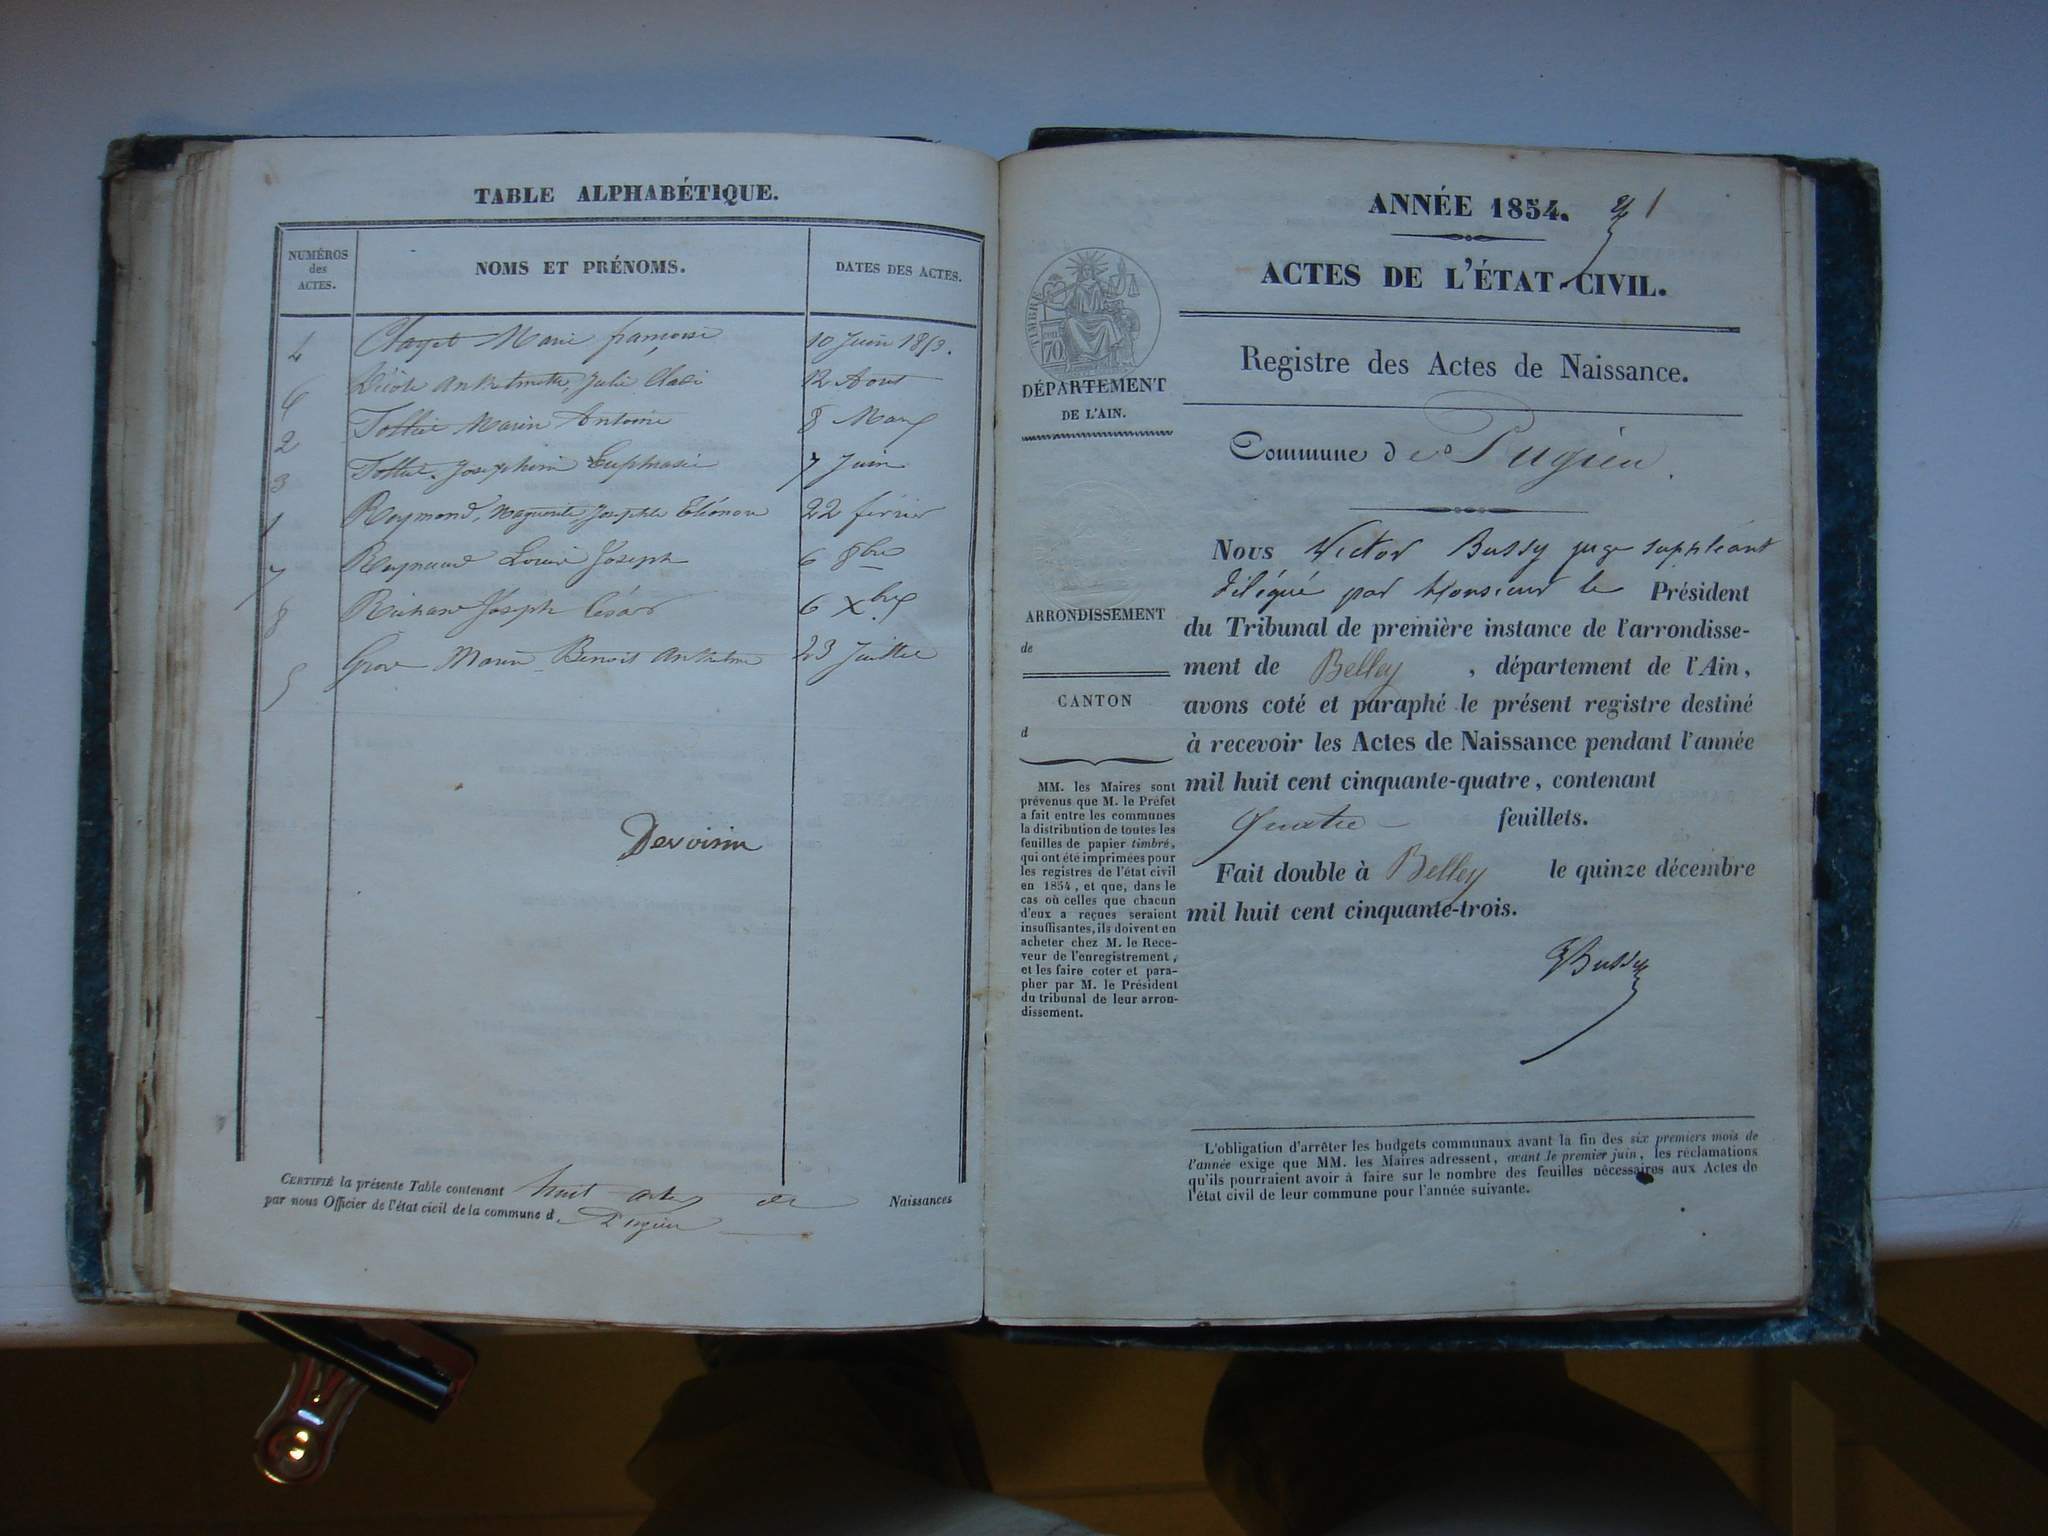 TABLE ALPHABÉTIQUE.
NUMÉROS
des
ACTES.
NOMS ET PRÉNOMS.
DATES DES ACTES.
4 Clayet Marie françoise 10 Juin 1853.
6 Julie 12 Aout
2 Tollet Marin Antoine 8 Mars
3 Tollet Josephine Euphrasie 7 Juin
1 Raymond, Marguerite Josephte Eléonore 22 février
7 Reynaud Louis Joseph 6 8bre
8 Richard Joseph César 6 Xbre
5 Benoit Anthelme 23 Juillet
Devoisin
CERTIFIÉ la présente Table contenant huit actes de Naissances
par nous Officier de l'état civil de la commune de Pugieu
ANNÉE 1854. 1
ACTES DE L'ÉTAT-CIVIL.
Registre des Actes de Naissance.
Commune de Pugieu.
TIMBRE
70
DÉPARTEMENT
DE L'AIN.
ARRONDISSEMENT
de
CANTON
d
MM. les Maires sont
prévenus que M. le Préfet
a fait entre les communes
la distribution de toutes les
feuilles de papier timbré,
qui ont été imprimées pour
les registres de l'état civil
en 1854, et que, dans le
cas où celles que chacun
d'eux a reçues seraient
insuffisantes, ils doivent en
acheter chez M. le Rece-
veur de l'enregistrement,
et les faire coter et para-
pher par M. le Président
du tribunal de leur arron-
dissement.
Nous Victor Bussy juge suppléant
délégué par Monsieur le Président
du Tribunal de première instance de l'arrondisse-
ment de Belley, département de l'Ain,
avons coté et paraphé le présent registre destiné
à recevoir les Actes de Naissance pendant l'année
mil huit cent cinquante-quatre, contenant
Quatre feuillets.
Fait double à Belley le quinze décembre
mil huit cent cinquante-trois.
VBussy
L'obligation d'arrêter les budgets communaux avant la fin des six premiers mois de
l'année exige que MM. les Maires adressent, avant le premier juin, les réclamations
qu'ils pourraient avoir à faire sur le nombre des feuilles nécessaires aux Actes de
l'état civil de leur commune pour l'année suivante.